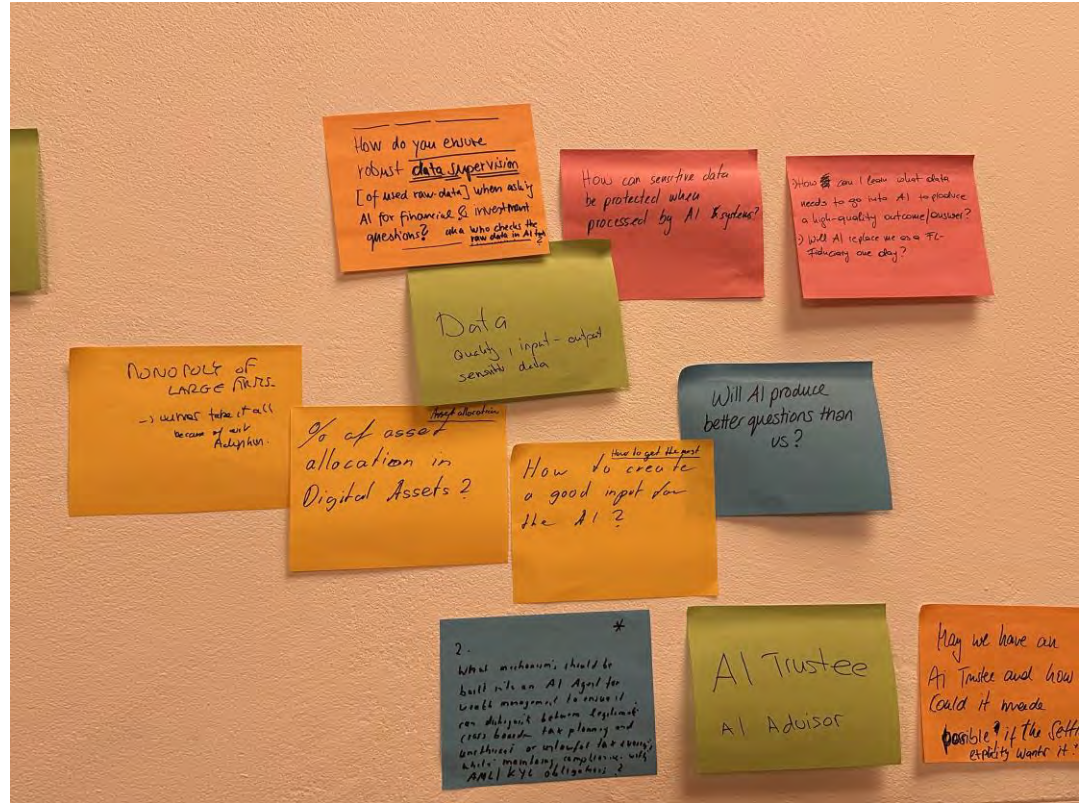 How do you ensure
robust data supervision
[of used raw-data] when asking
AI for financial & investment
questions? aka who checks the
raw data in AI
How can sensitive data
be protected when
processed by AI systems?
How can I learn what data
needs to go into AI to produce
a high-quality outcome/answer?
Will AI replace me as a FL-
Fiduciary one day?
Data
Quality, input-output
sensitive data
MONOPOLY OF
LARGE FIRMS.
-> winner take it all
because of
Adoption.
Asset allocation
% of asset
allocation in
Digital Assets?
How to get the most
How to create
a good input for
the AI?
Will AI produce
better questions than
us?
*
2.
What mechanisms should be
built into an AI Agent for
wealth management to ensure it
can distinguish between legitimate
cross boarder tax planning and
unethical or unlawful tax evasion,
while maintaining compliance with
AML/KYC obligations?
AI Trustee
AI Advisor
May we have an
Ai Trustee and how
Could it made
possible? if the Settl
explicitly wants it?